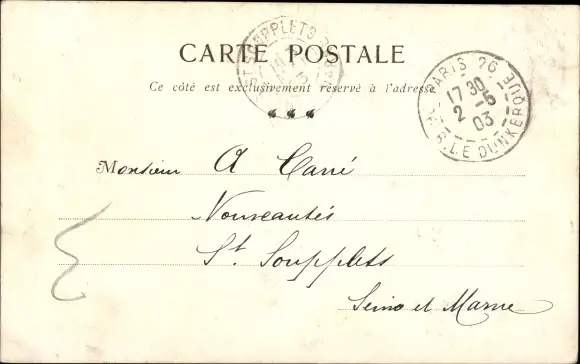 CARTE POSTALE
Ce côté est exclusivement réservé à l'adresse
PARIS 26
17 30
2 - 5
03
R. LE DUNKERQUE
Sᵗ SOUPPLETS
Monsieur A Carré
Nouveautés
Sᵗ. Soupplets
Seine et Marne